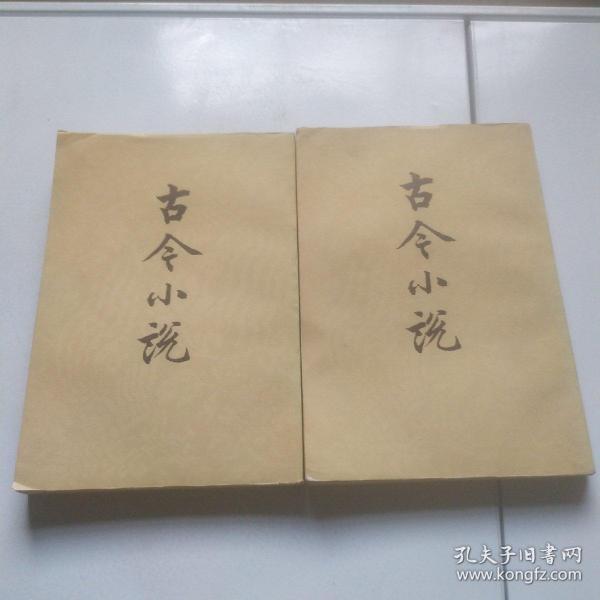 古今小说
古今小说
孔夫子旧書网
www.kongfz.com